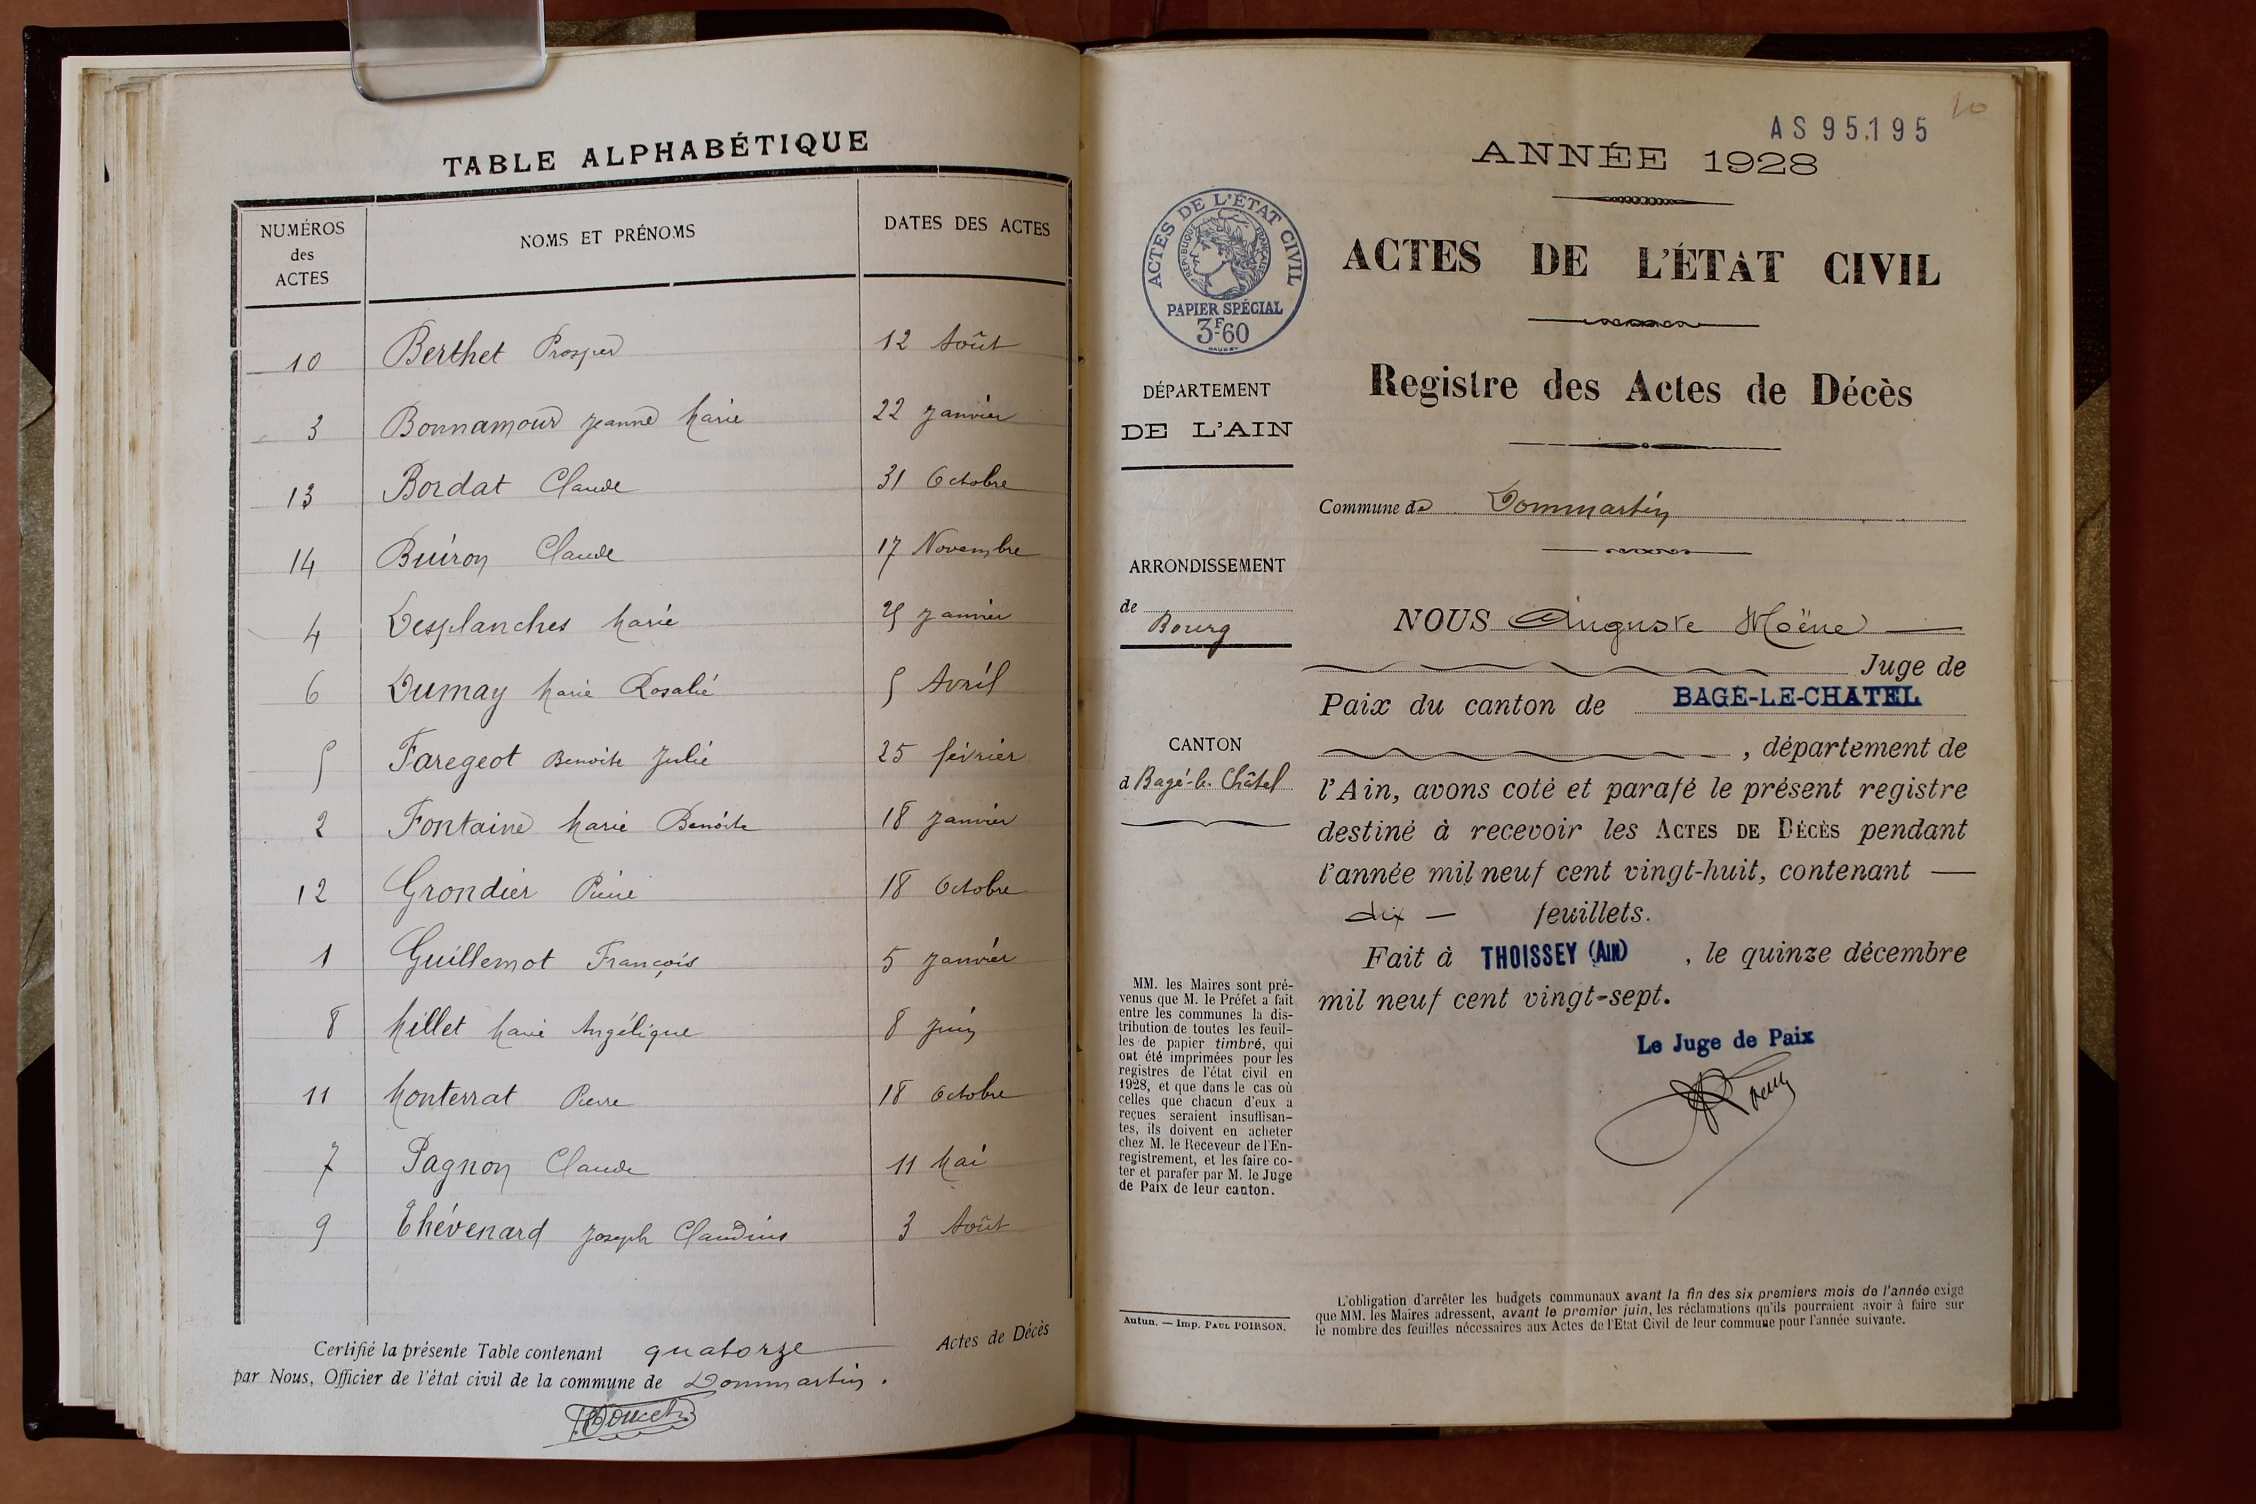 TABLE ALPHABÉTIQUE
NUMÉROS des ACTES NOMS ET PRÉNOMS DATES DES ACTES
10 Berthet Prosper 12 Août
3 Bonnamour Jeanne Marie 22 Janvier
13 Bordat Claude 31 Octobre
14 Buiron Claude 17 Novembre
4 Desplanches Marie 25 Janvier
6 Dumay Marie Rosalie 5 Avril
5 Faregeot Benoite Julie 25 février
2 Fontaine Marie Benoite 18 Janvier
12 Grondier Pierre 18 Octobre
1 Guillemot François 5 Janvier
8 Millet Marie Angélique 8 Juin
11 Monterrat Pierre 18 Octobre
7 Pagnon Claude 11 Mai
9 Thévenard Joseph Claudius 3 Août
Certifié la présente Table contenant quatorze Actes de Décès
par Nous, Officier de l'état civil de la commune de Dommartin.
Doucet
10
AS 95.195
ANNÉE 1928
ACTES DE L'ÉTAT CIVIL
RÉPUBLIQUE FRANÇAISE
PAPIER SPÉCIAL
3F60
ACTES DE L'ÉTAT CIVIL
Registre des Actes de Décès
DÉPARTEMENT
DE L'AIN
Commune de Dommartin
ARRONDISSEMENT
de
Bourg
CANTON
d Bagé-le-Châtel
NOUS Auguste Moëne
Juge de
Paix du canton de BAGÉ-LE-CHATEL
, département de
l'Ain, avons coté et parafé le présent registre
destiné à recevoir les ACTES DE DÉCÈS pendant
l'année mil neuf cent vingt-huit, contenant —
dix — feuillets.
Fait à THOISSEY (AIN) , le quinze décembre
mil neuf cent vingt-sept.
Le Juge de Paix
MM. les Maires sont pré-
venus que M. le Préfet a fait
entre les communes la dis-
tribution de toutes les feuil-
les de papier timbré, qui
ont été imprimées pour les
registres de l'état civil en
1928, et que dans le cas où
celles que chacun d'eux a
reçues seraient insuffisan-
tes, ils doivent en acheter
chez M. le Receveur de l'En-
registrement, et les faire co-
ter et parafer par M. le Juge
de Paix de leur canton.
Autun. — Imp. PAUL POIRSON.
L'obligation d'arrêter les budgets communaux avant la fin des six premiers mois de l'année exige
que MM. les Maires adressent, avant le premier juin, les réclamations qu'ils pourraient avoir à faire sur
le nombre des feuilles nécessaires aux Actes de l'Etat Civil de leur commune pour l'année suivante.